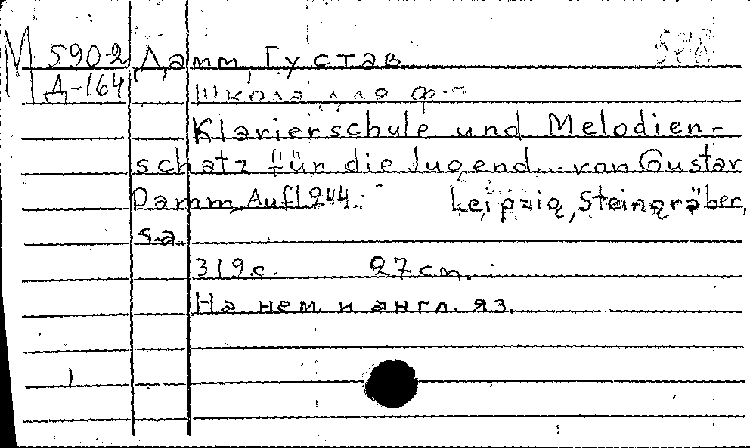 М 590-2 Дамм, Густав
Д-164 Школа для ф-п
Klavierschule und Melodien-
schatz für die Jugend... von Gustav
Damm, Aufl 244. Leipzig, Steingräber,
s.a.
319 с. 27 cm.
На нем. и англ. яз.